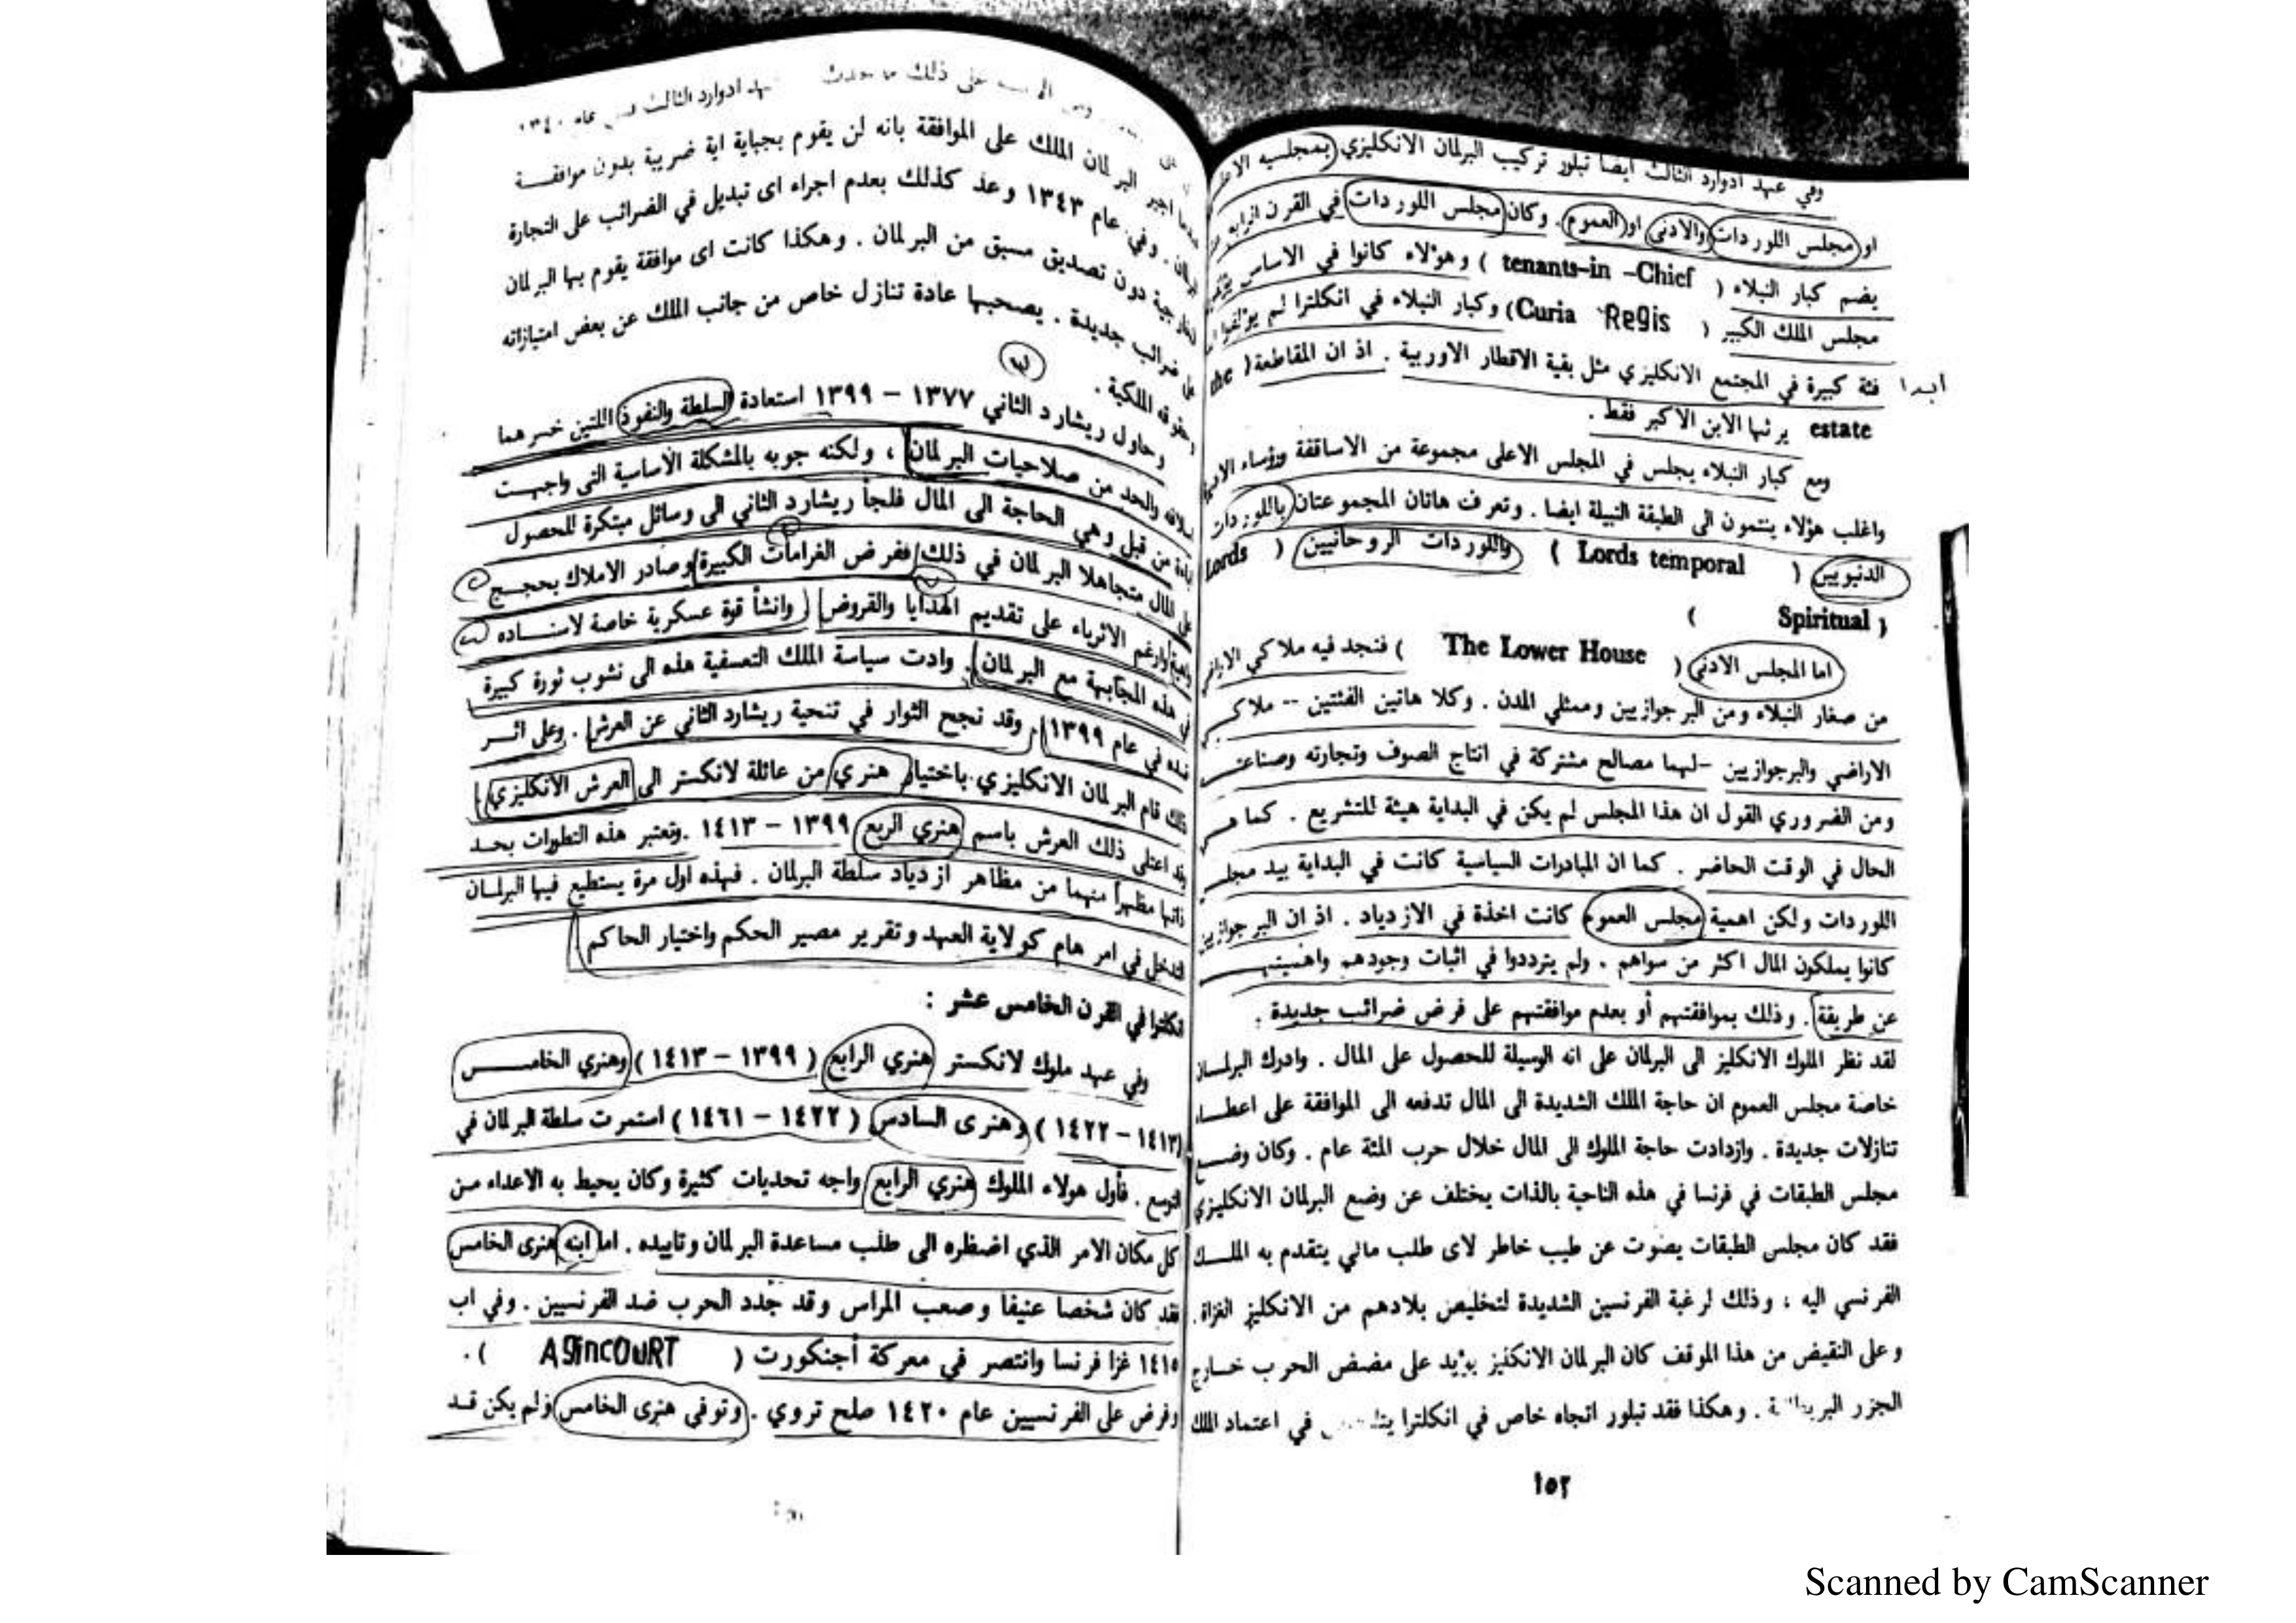 وفي عهد ادوارد الثالث ايضا تبلور تركيب البرلمان الانكليزي بمجلسيه الاعلى
او مجلس اللوردات والادنى او العموم . وكان مجلس اللوردات في القرن الرابع
يضم كبار النبلاء ( tenants-in -Chief ) وهؤلاء كانوا في الاساس
مجلس الملك الكبير ( Curia Regis ) وكبار النبلاء في انكلترا لم يؤلفوا
ابدا
فئة كبيرة في المجتمع الانكليزي مثل بقية الاقطار الاوربية . اذ ان المقاطعة ( the
estate يرثها الابن الاكبر فقط .
ومع كبار النبلاء يجلس في المجلس الاعلى مجموعة من الاساقفة ورؤساء
واغلب هؤلاء ينتمون الى الطبقة النبيلة ايضا . وتعرف هاتان المجموعتان باللوردات
الدنيويين ( Lords temporal ) واللوردات الروحانيين ( Lords
Spiritual )
اما المجلس الادنى ( The Lower House ) فنجد فيه ملاكي الاراضي
من صغار النبلاء ومن البرجوازيين وممثلي المدن . وكلا هاتين الفئتين -- ملاكي
الاراضي والبرجوازيين – لهما مصالح مشتركة في انتاج الصوف وتجارته وصناعته
ومن الضروري القول ان هذا المجلس لم يكن في البداية هيئة للتشريع . كما هي
الحال في الوقت الحاضر . كما ان المبادرات السياسية كانت في البداية بيد مجلس
اللوردات ولكن اهمية مجلس العموم كانت اخذة في الازدياد . اذ ان البرجوازيين
كانوا يملكون المال اكثر من سواهم . ولم يترددوا في اثبات وجودهم واهميتهم
عن طريقة . وذلك بموافقتهم أو بعدم موافقتهم على فرض ضرائب جديدة .
لقد نظر الملوك الانكليز الى البرلمان على انه الوسيلة للحصول على المال . وادرك البرلمان
خاصة مجلس العموم ان حاجة الملك الشديدة الى المال تدفعه الى الموافقة على اعطاء
تنازلات جديدة . وازدادت حاجة الملوك الى المال خلال حرب المئة عام . وكان وضع
مجلس الطبقات في فرنسا في هذه الناحية بالذات يختلف عن وضع البرلمان الانكليزي
فقد كان مجلس الطبقات يصوت عن طيب خاطر لاى طلب مالي يتقدم به الملك
الفرنسي اليه ، وذلك لرغبة الفرنسين الشديدة لتخليص بلادهم من الانكليز الغزاة .
وعلى النقيض من هذا الموقف كان البرلمان الانكليز يؤيد على مضض الحرب خارج
الجزر . وهكذا فقد تبلور اتجاه خاص في انكلترا في اعتماد الملك
١٥٢
على ذلك ما حدث عهد ادوارد الثالث عام ١٣٤٠
عندما اجبر البرلمان الملك على الموافقة بانه لن يقوم بجباية اية ضريبة بدون موافقة
البرلمان . وفي عام ١٣٤٣ وعد كذلك بعدم اجراء اى تبديل في الضرائب على التجارة
الخارجية دون تصديق مسبق من البرلمان . وهكذا كانت اى موافقة يقوم بها البرلمان
على ضرائب جديدة . يصحبها عادة تنازل خاص من جانب الملك عن بعض امتيازاته
وحقوقه الملكية .
وحاول ريشارد الثاني ١٣٧٧ – ١٣٩٩ استعادة السلطة والنفوذ اللتين خسرهما
اسلافه والحد من صلاحيات البرلمان ، ولكنه جوبه بالمشكلة الأساسية التى واجهت
من قبل وهي الحاجة الى المال فلجأ ريشارد الثاني الى وسائل مبتكرة للحصول
على المال متجاهلا البرلمان في ذلك ففرض الغرامات الكبيرة وصادر الاملاك بحجج
وارغم الاثرياء على تقديم الهدايا والقروض وانشأ قوة عسكرية خاصة لاسناده
في هذه المجابهة مع البرلمان . وادت سياسة الملك التعسفية هذه الى نشوب ثورة كبيرة
ضده في عام ١٣٩٩ . وقد نجح الثوار في تنحية ريشارد الثاني عن العرش . وعلى اثر
ذلك قام البرلمان الانكليزي باختيار هنري من عائلة لانكستر الى العرش الانكليزي
وقد اعتلى ذلك العرش باسم هنري الربع ١٣٩٩ – ١٤١٣ . وتعتبر هذه التطورات بحد
ذاتها مظهراً منهما من مظاهر ازدياد سلطة البرلمان . فهذه اول مرة يستطيع فيها البرلمان
التدخل في امر هام كولاية العهد وتقرير مصير الحكم واختيار الحاكم
انكلترا في القرن الخامس عشر :
وفي عهد ملوك لانكستر هنري الرابع ( ١٣٩٩ – ١٤١٣ ) وهنري الخامس
( ١٤١٣ – ١٤٢٢ ) وهنرى السادس ( ١٤٢٢ – ١٤٦١ ) استمرت سلطة البرلمان في
التوسع . فأول هولاء الملوك هنري الرابع واجه تحديات كثيرة وكان يحيط به الاعداء من
كل مكان الامر الذي اضطره الى طلب مساعدة البرلمان وتاييده . اما ابنه هنرى الخامس
فقد كان شخصا عنيفا وصعب المراس وقد جدد الحرب ضد الفرنسيين . وفي اب
١٤١٥ غزا فرنسا وانتصر في معركة أجنكورت ( AgincouRT ) .
وفرض على الفرنسيين عام ١٤٢٠ صلح تروي . وتوفي هنرى الخامس ولم يكن قد
Scanned by CamScanner